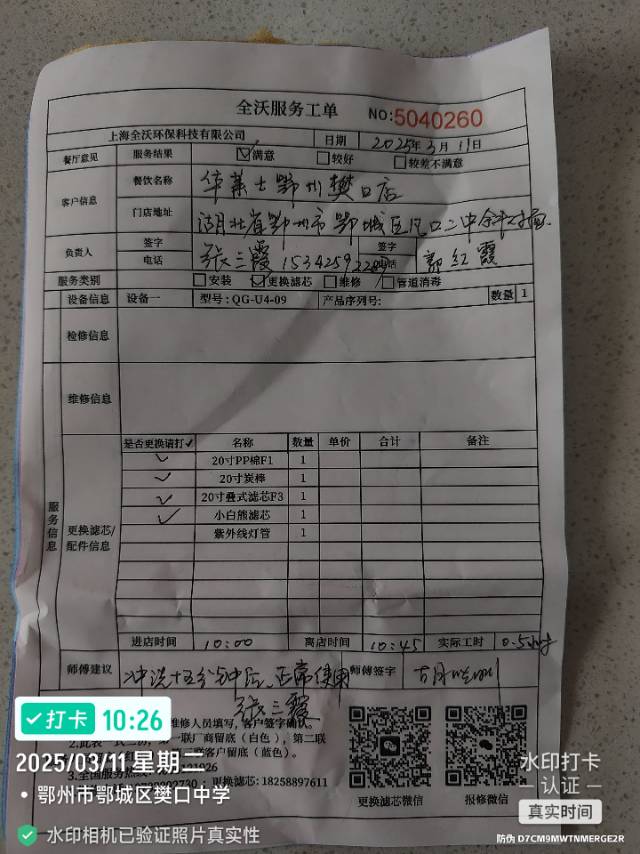 全沃服务工单 NO:5040260
上海全沃环保科技有限公司 日期 2025年3月11日
餐厅意见 服务结果 ☑满意 □较好 □较差不满意
客户信息 餐饮名称 华莱士鄂州樊口店
门店地址 湖北省鄂州市鄂城区
负责人 签字 张三霞 签字 郭红霞
电话 电话
服务类别 □安装 ☑更换滤芯 □维修 □管道消毒
设备信息 设备一 型号:QG-U4-09 产品序列号: 数量 1
检修信息
维修信息
服务信息
更换滤芯/配件信息
是否更换请打✓ 名称 数量 单价 合计 备注
✓ 20寸PP棉F1 1
✓ 20寸炭棒 1
✓ 20寸叠式滤芯F3 1
✓ 小白熊滤芯 1
紫外线灯管 1
进店时间 10:00 离店时间 10:45 实际工时
师傅建议 冲洗十五分钟后、正常使用 师傅签字
张三霞
维修人员填写,客户签字确认。
2.此表一式三份,第一联厂商留底(白色),第二联
客户留底(蓝色)。
3.全国服务热线
更换滤芯:18258897611
更换滤芯微信 报修微信
打卡 10:26
2025/03/11 星期二
鄂州市鄂城区樊口中学
水印相机已验证照片真实性
水印打卡
认证
真实时间
防伪 D7CM9MWTNMERGE2R